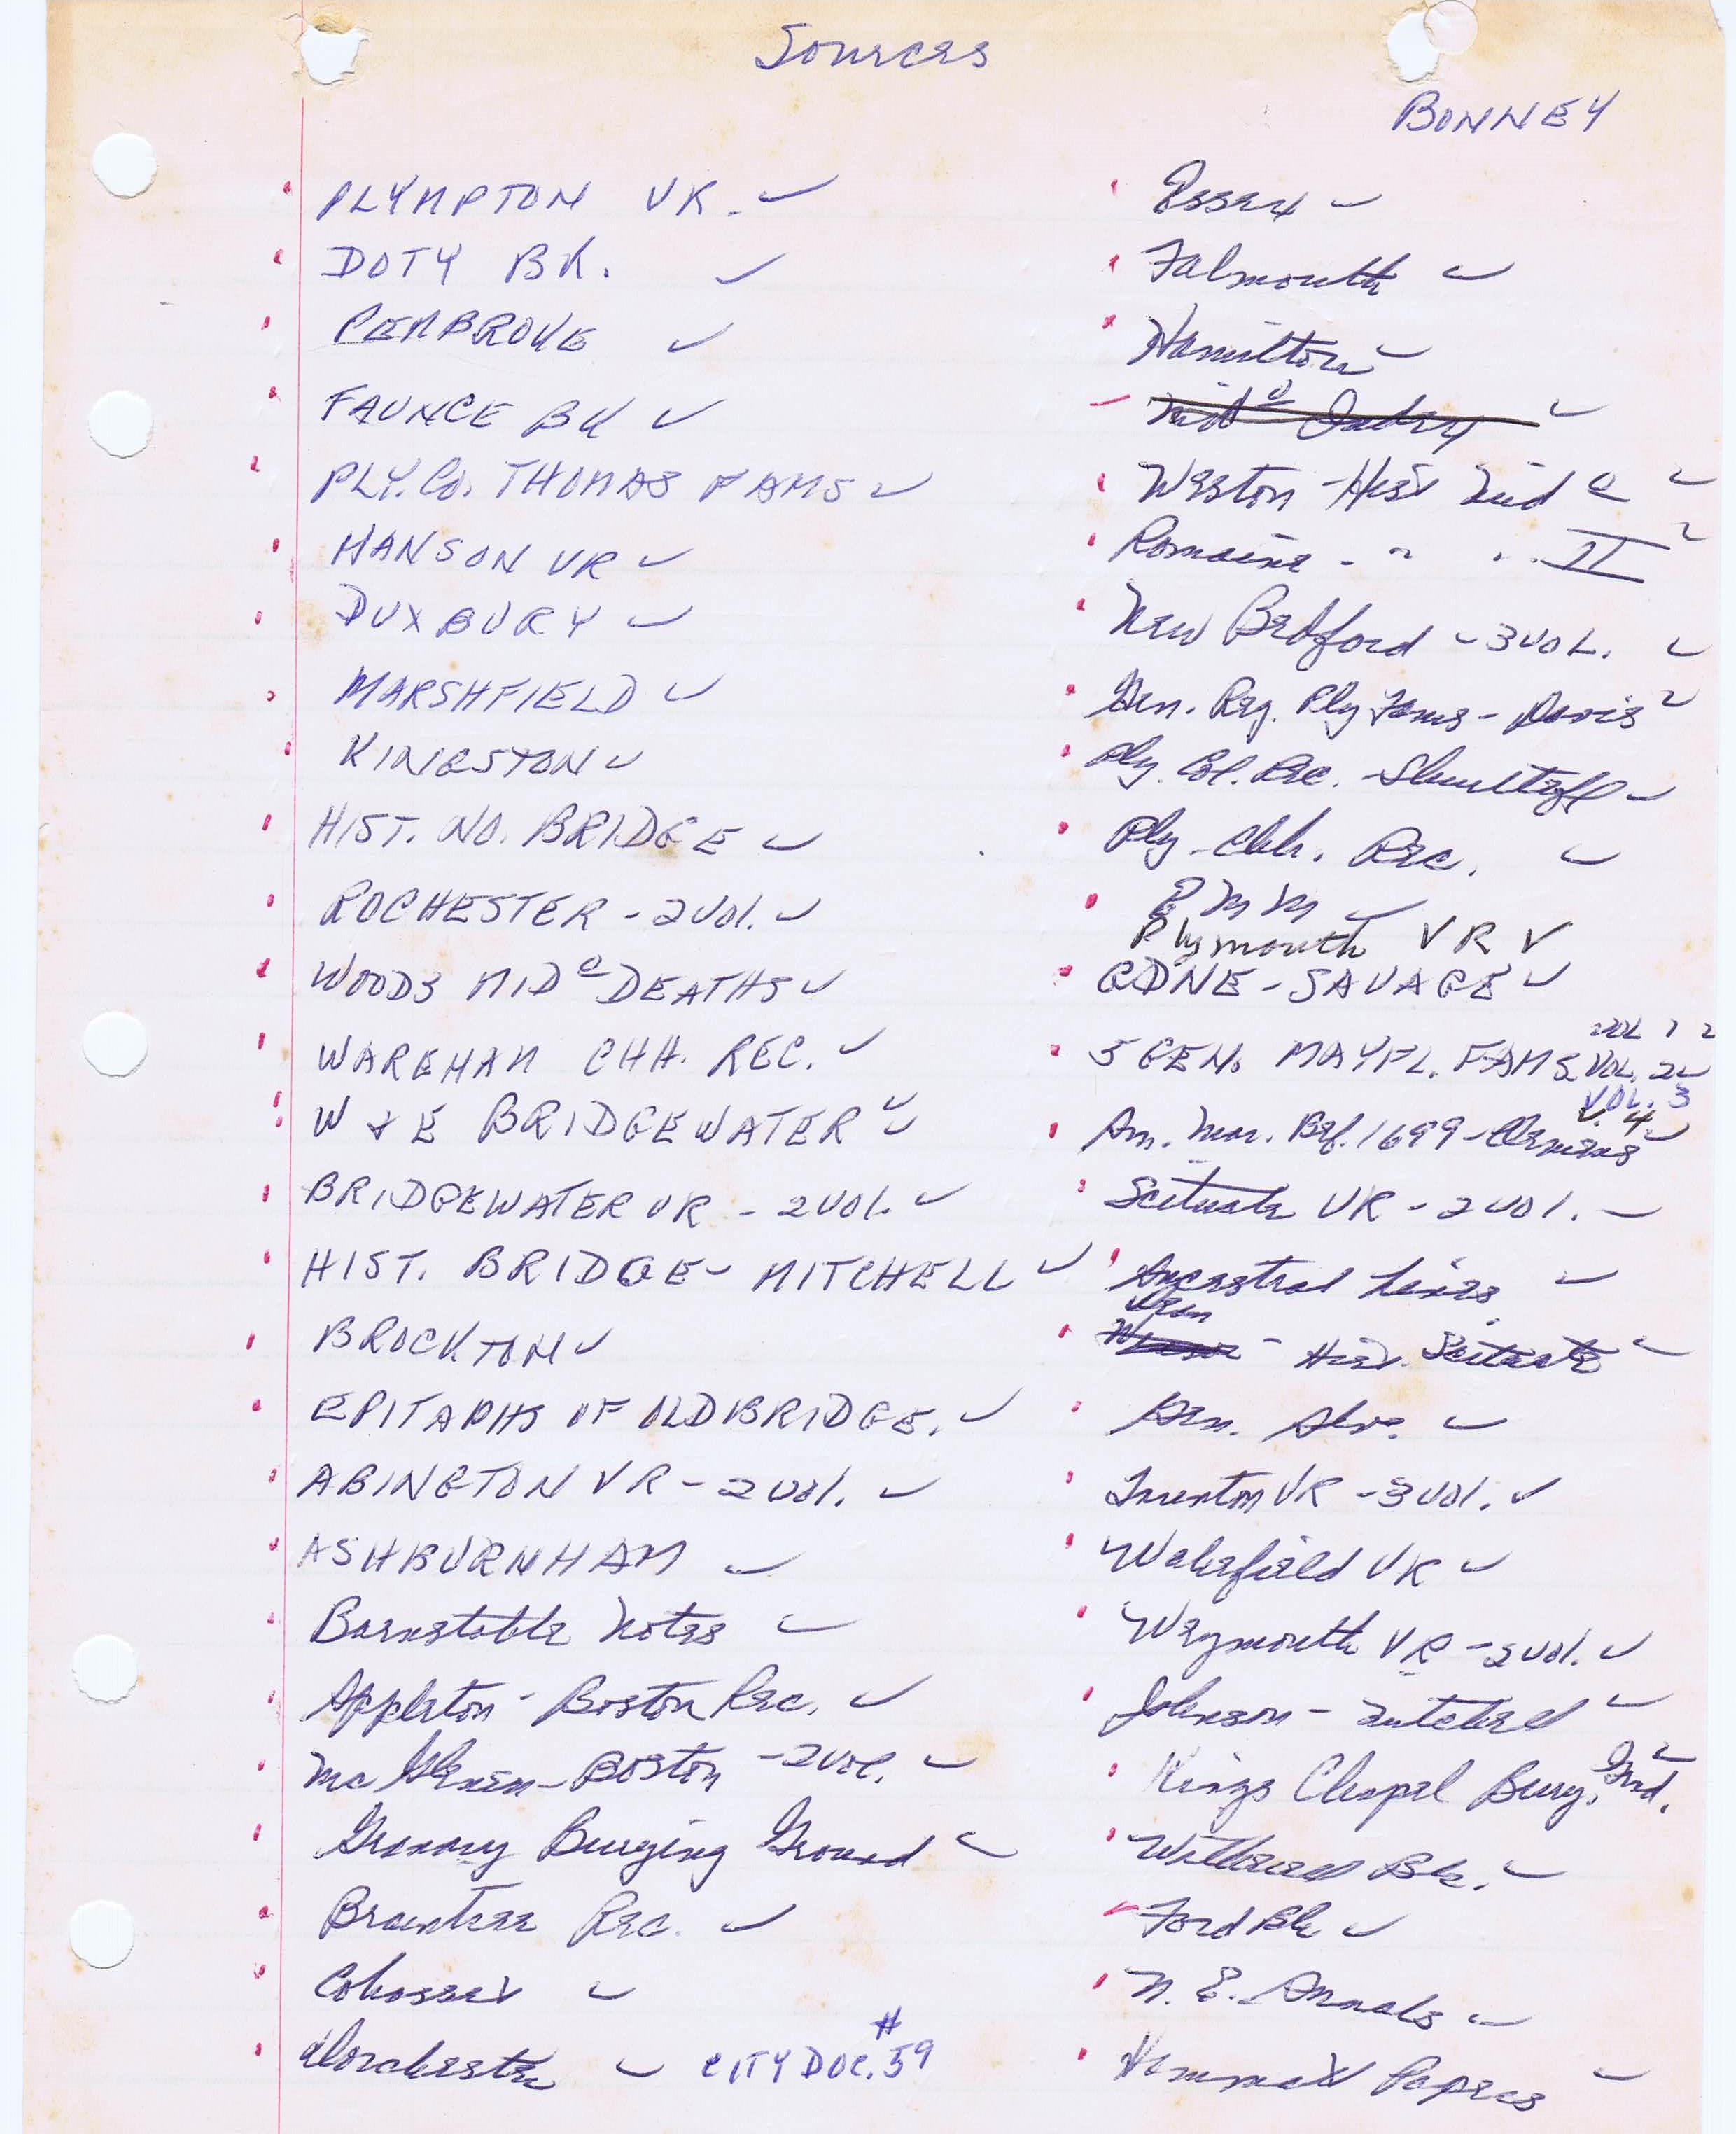 Sources
BONNEY
PLYMPTON VR. ✓
DOTY BK. ✓
PEMBROKE ✓
FAUNCE BK ✓
PLY. Co. THOMAS FAMS ✓
HANSON VR ✓
DUXBURY ✓
MARSHFIELD ✓
KINGSTON ✓
HIST. NO. BRIDGE ✓
ROCHESTER - 2 Vol. ✓
WOODS MIDº DEATHS ✓
WAREHAM CHH. REC. ✓
W & E BRIDGEWATER ✓ ✓
BRIDGEWATER VR - 2 Vol. ✓
HIST. BRIDGE - MITCHELL ✓
BROCKTON ✓
EPITAPHS OF OLD BRIDGE. ✓
ABINGTON VR - 2 Vol. ✓
ASHBURNHAM ✓
Barnstable Notes ✓
Appleton - Boston Rec. ✓
Mc Glenen - Boston - 2 Vol. ✓
Granary Burying Ground ✓
Braintree Rec. ✓
Cohasset ✓
Dorchester ✓ CITY DOC. #59
Essex ✓
Falmouth ✓
Hamilton ✓
Midº ✓
Weston - Hist Mid º ✓
Romaine - " " . . II ✓
New Bedford - 3 VOL. ✓
Gen. Reg. Ply Fams - Davis ✓
Ply. Col. Rec. - Shurtleff ✓
Ply. Chh. Rec. ✓
P M M ✓
Plymouth VR ✓
GDNE - SAVAGE ✓
VOL 1 ✓
5 GEN. MAYFL. FAMS VOL. 2 ✓
VOL. 3
V. 4 ✓
Am. Mar. Bef. 1699 - Clemens
Scituate VR - 2 Vol. ✓
Ancestral Lines ✓
Dean
- Hist. Scituate ✓
Gen. Adv. ✓
Taunton VR - 3 Vol. ✓
Wakefield VR ✓
Weymouth VR - 2 Vol. ✓
Johnson - ✓
Kings Chapel Bury. Grd. ✓
Bk. ✓
Ford Bk ✓
N. E. Annals ✓
Hammatt Papers ✓